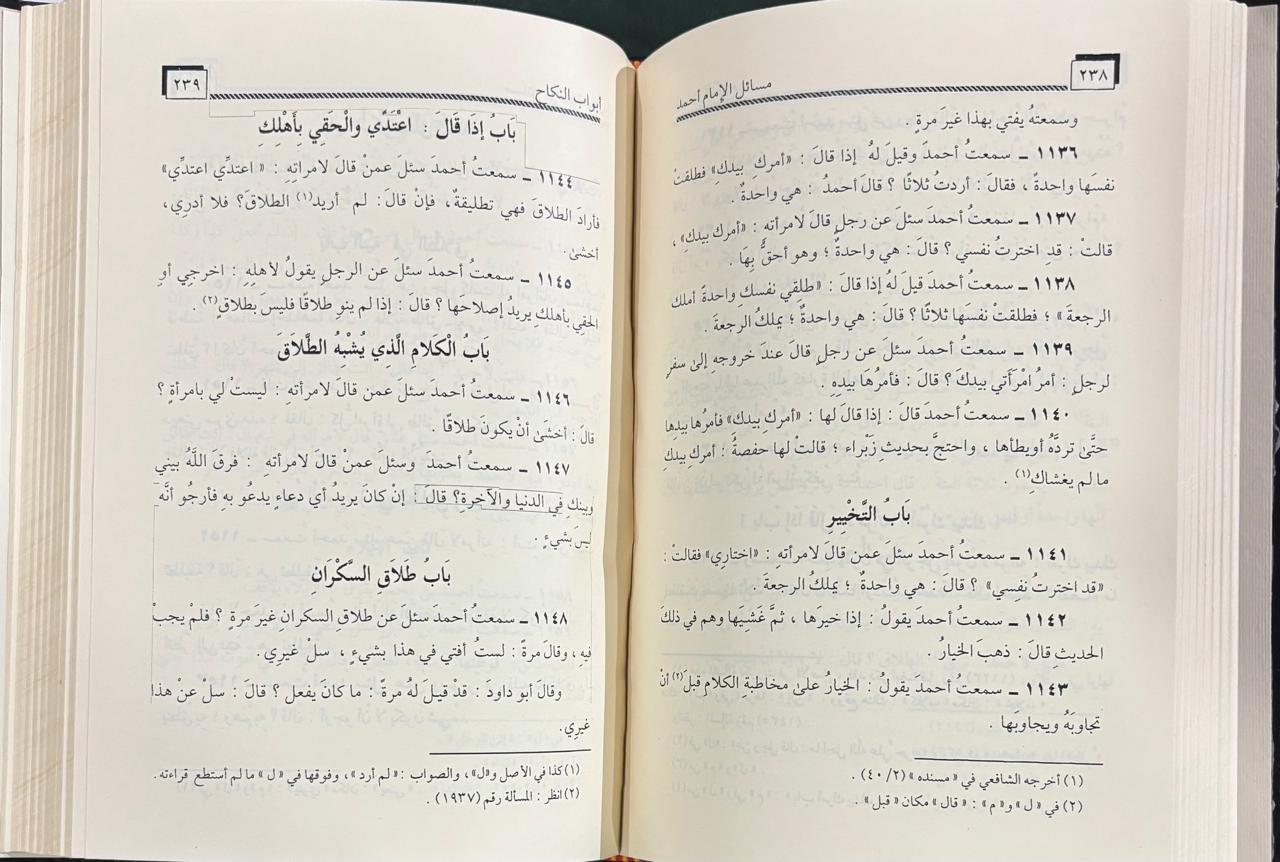 ٢٣٨
مسائل الإمام أحمد
وسمعتهُ يفتي بهذا غيرَ مرةٍ .
١١٣٦ ـ سمعتُ أحمدَ وقيلَ لهُ إذا قالَ : «أمركِ بيدكِ» فطلقتْ
نفسَها واحدةً ، فقالَ : أردتُ ثلاثًا ؟ قالَ أحمدُ : هي واحدةٌ .
١١٣٧ ـ سمعتُ أحمدَ سئلَ عن رجلٍ قالَ لامرأتهِ : «أمرك بيدك» ،
قالتْ : قدِ اخترتُ نفسي ؟ قالَ : هي واحدةٌ ؛ وهو أحقُّ بِهَا .
١١٣٨ ـ سمعتُ أحمدَ قيلَ لهُ إذا قالَ : «طلقِي نفسكِ واحدةً أملك
الرجعةَ» ؛ فطلقتْ نفسَها ثلاثًا ؟ قالَ : هي واحدةٌ ؛ يملكُ الرجعةَ .
١١٣٩ ـ سمعتُ أحمدَ سئلَ عن رجلٍ قالَ عندَ خروجهِ إلى سفرٍ
لرجلٍ : أمرُ امْرَأَتي بيدكَ ؟ قالَ : فأمرُها بيدِهِ .
١١٤٠ ـ سمعتُ أحمدَ قالَ : إذا قالَ لها : «أمركِ بيدك» فأمرُها بيدِها
حتَّى تردَّهُ أو يطأها ، واحتجَّ بحديثِ زَبْراء ؛ قالتْ لها حفصةُ : أمركِ بيدكِ
ما لم يغشاكِ(١) .
بَابُ التَّخْيِيرِ
١١٤١ ـ سمعتُ أحمدَ سئلَ عمن قالَ لامرأتهِ : «اختارِي» فقالتْ :
«قد اخترتُ نفسِي» ؟ قالَ : هي واحدةٌ ؛ يملكُ الرجعةَ .
١١٤٢ ـ سمعتُ أحمدَ يقولُ : إذا خيرَها ، ثمَّ غَشيَها وهم في ذلكَ
الحديثِ قالَ : ذهبَ الخيارُ .
١١٤٣ ـ سمعتُ أحمدَ يقولُ : الخيارُ على مخاطبةِ الكلامِ قبلَ(٢) أنْ
تجاوبَهُ ويجاوبَها .
(١) أخرجه الشافعي في «مسنده» (٢/ ٤٠) .
(٢) في «ل» و«م» : «قال» مكان «قبل» .
٢٣٩
أبواب النكاح
بَابُ إذَا قَالَ : اعْتَدِّي والْحَقِي بِأَهْلِكِ
١١٤٤ ـ سمعتُ أحمدَ سئلَ عمنْ قالَ لامراتهِ : «اعتدِّي اعتدِّي»
فأرادَ الطلاقَ فهي تطليقةٌ، فإنْ قالَ : لم أريد(١) الطلاقَ؟ فلا أدرِي،
أخشىٰ .
١١٤٥ ـ سمعتُ أحمدَ سئلَ عن الرجلِ يقولُ لأهلِهِ : اخرجِي أوِ
الحَقِي بأهلكِ يريدُ إصلاحَها ؟ قالَ : إذا لم ينوِ طلاقًا فليسَ بطلاقٍ(٢) .
بَابُ الْكَلامِ الَّذِي يُشْبِهُ الطَّلاقَ
١١٤٦ ـ سمعتُ أحمدَ سئلَ عمن قالَ لامرأتهِ : ليستْ لي بامرأةٍ ؟
قالَ : أخشَىٰ أنْ يكونَ طلاقًا .
١١٤٧ ـ سمعتُ أحمدَ وسئلَ عمنْ قالَ لامرأتهِ : فرقَ اللَّهُ بيني
وبينكِ في الدنيا والآخرة؟ قالَ : إنْ كانَ يريدُ أي دعاءٍ يدعُو بهِ فأرجُو أنَّهُ
ليسَ بشيءٍ .
بَابُ طَلاقِ السَّكْرَانِ
١١٤٨ ـ سمعتُ أحمدَ سئلَ عن طلاقِ السكرانِ غيرَ مرةٍ ؟ فلمْ يجبْ
فيهِ ، وقالَ مرةً : لستُ أفتي في هذا بشيءٍ ، سلْ غيرِي .
وقالَ أبو داودَ : قدْ قيلَ لهُ مرةً : ما كانَ يفعل ؟ قالَ : سلْ عنْ هذا
غيرِي .
(١) كذا في الأصل و«ل»، والصواب : «لم أرد»، وفوقها في «ل» ما لم أستطع قراءته .
(٢) انظر : المسألة رقم (١٩٣٧) .